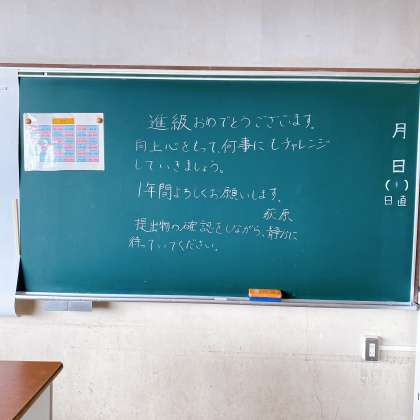 進級おめでとうございます。
向上心をもって、何事にもチャレンジ
していきましょう。
1年間よろしくお願いします。
荻原
提出物の確認をしながら、静かに
待っていてください。
月
日
(1)
日直